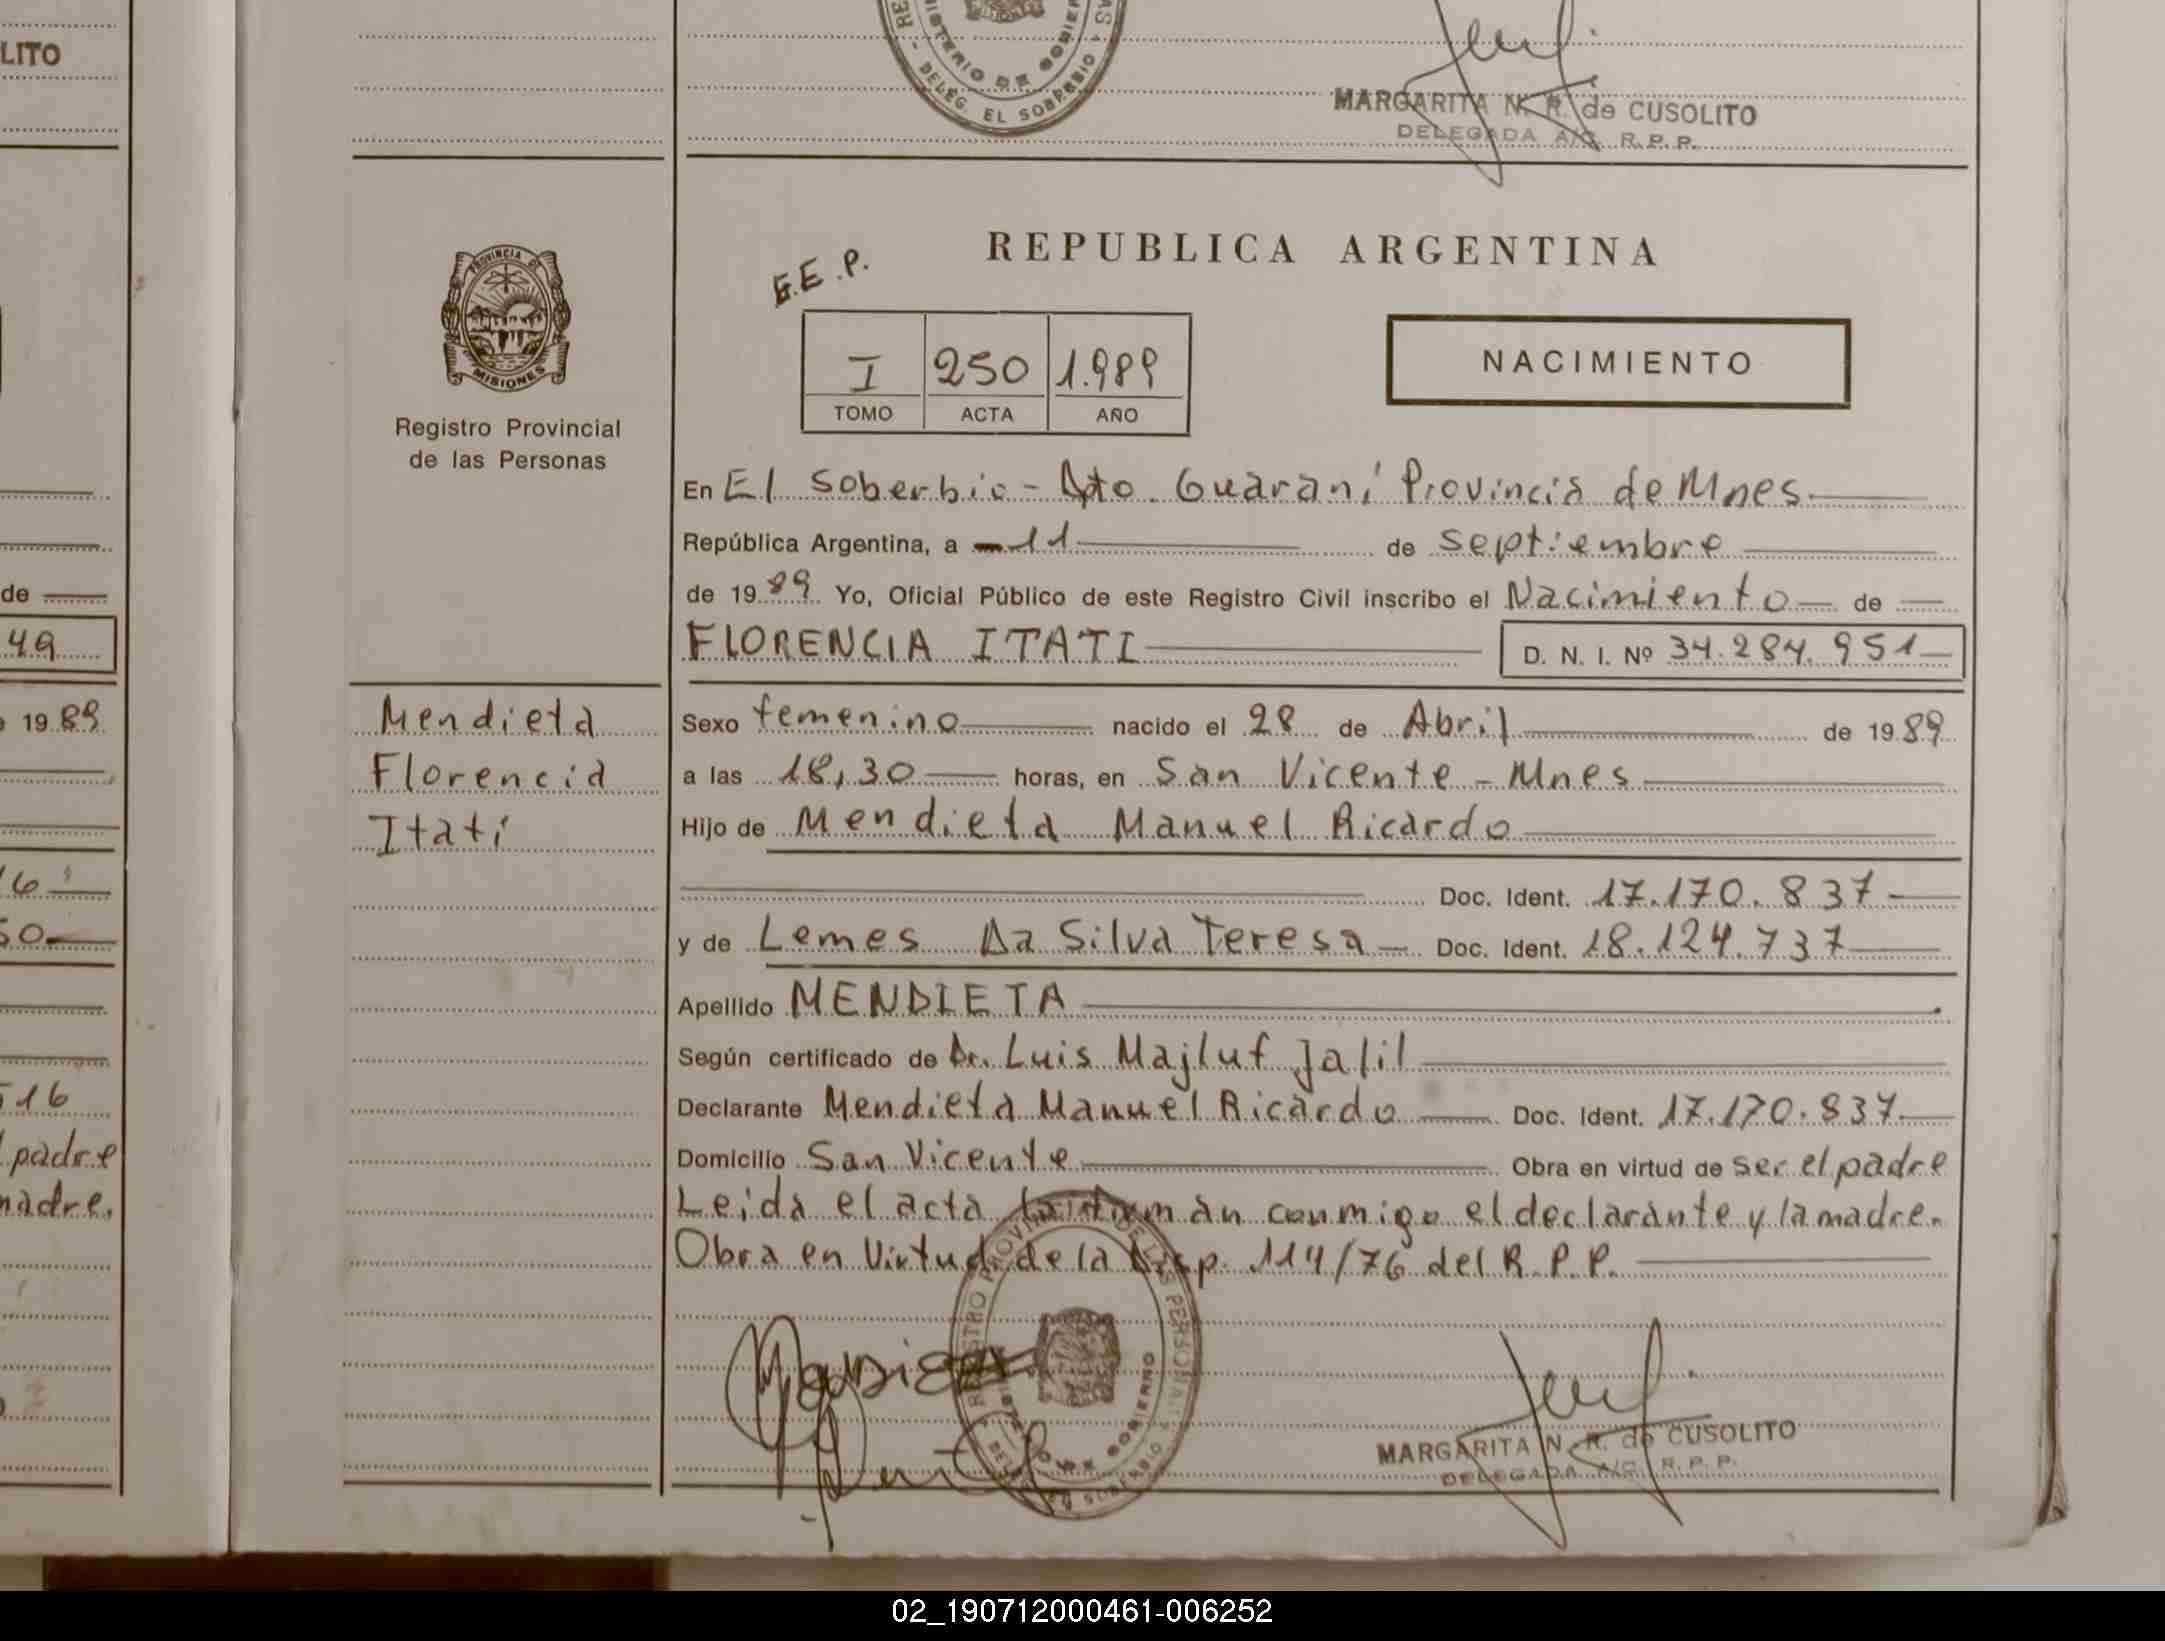 LITO
MINISTERIO DE GOBIERNO
DELEG. EL SOBERBIO
MARGARITA N. R. de CUSOLITO
DELEGADA A/C. R.P.P.
PROVINCIA DE
MISIONES
Registro Provincial
de las Personas
E.E.P.
REPUBLICA ARGENTINA
I 250 1.989
TOMO ACTA AÑO
NACIMIENTO
En El Soberbio - Dpto. Guaraní Provincia de Mnes
República Argentina, a 11 de Septiembre
de 1989 Yo, Oficial Público de este Registro Civil inscribo el Nacimiento de
FLORENCIA ITATI D. N. I. Nº 34.284.951
de
49
Mendieta
Florencia
Itatí
Sexo femenino nacido el 28 de Abril de 1989
a las 18,30 horas, en San Vicente - Mnes
Hijo de Mendieta Manuel Ricardo
Doc. Ident. 17.170.837
y de Lemes Da Silva Teresa Doc. Ident. 18.124.737
Apellido MENDIETA
Según certificado de Dr. Luis Majluf Jalil
Declarante Mendieta Manuel Ricardo Doc. Ident. 17.170.837
Domicilio San Vicente Obra en virtud de ser el padre
Leida el acta la firman conmigo el declarante y la madre.
Obra en Virtud de la Disp. 114/76 del R.P.P.
1989
16
50
516
padre
madre.
REGISTRO PROVINCIAL DE LAS PERSONAS
MINISTERIO DE GOBIERNO
DELEG. EL SOBERBIO
MARGARITA N. R. de CUSOLITO
DELEGADA A/C. R.P.P.
02_190712000461-006252